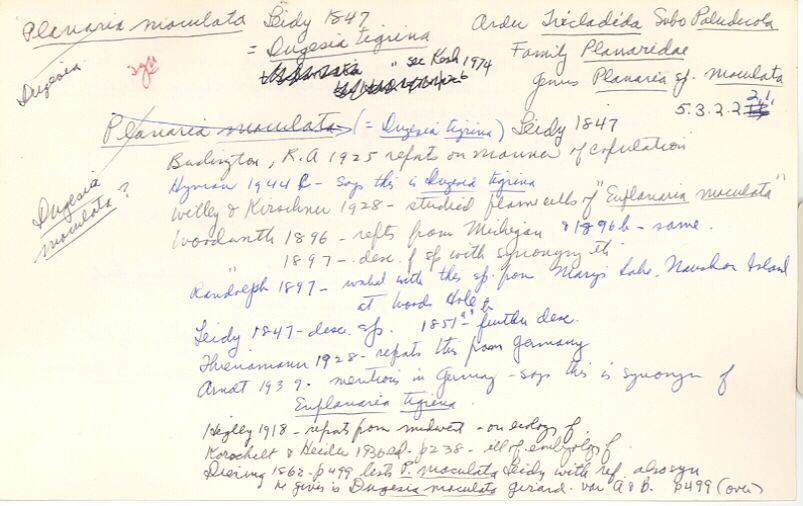 Planaria maculata Leidy 1847
= Dugesia tigrina
" see Kenk 1974
Order Tricladida Subo Paludicola
Family Planaridae
Genus Planaria sp. maculata
5.3.2.2 2.1.
Dugesia
syn
Planaria maculata (= Dugesia tigrina) Leidy 1847
Dugesia maculata ?
Budington, R.A 1925 repts on manner of copulation
Hyman 1944 - says this is Dugesia tigrina
Willey & Kirschner 1928 - studied flame cells of "Euplanaria maculata"
Woodworth 1896 - repts from Michigan & 1896b - same.
" 1897 - desc. of sp with synonymy etc
Randolph 1897 - worked with this sp. from Mary's Lake, Naushon Island
at Woods Hole
Leidy 1847 - desc. sps. 1851 - further desc.
Thienemann 1928 - repts this from Germany
Arndt 193?. mentions in Germany - says this is synonym of
Euplanaria tigrina.
Higley 1918 - repts from midwest - on ecology of.
Korschelt & Heider 1936 ed. p238 - ill of embryology of.
Diesing 1862 - p499 lists P. maculata Leidy with ref. also syn
he gives is Dugesia maculata Girard. var A & B. p499 (over)